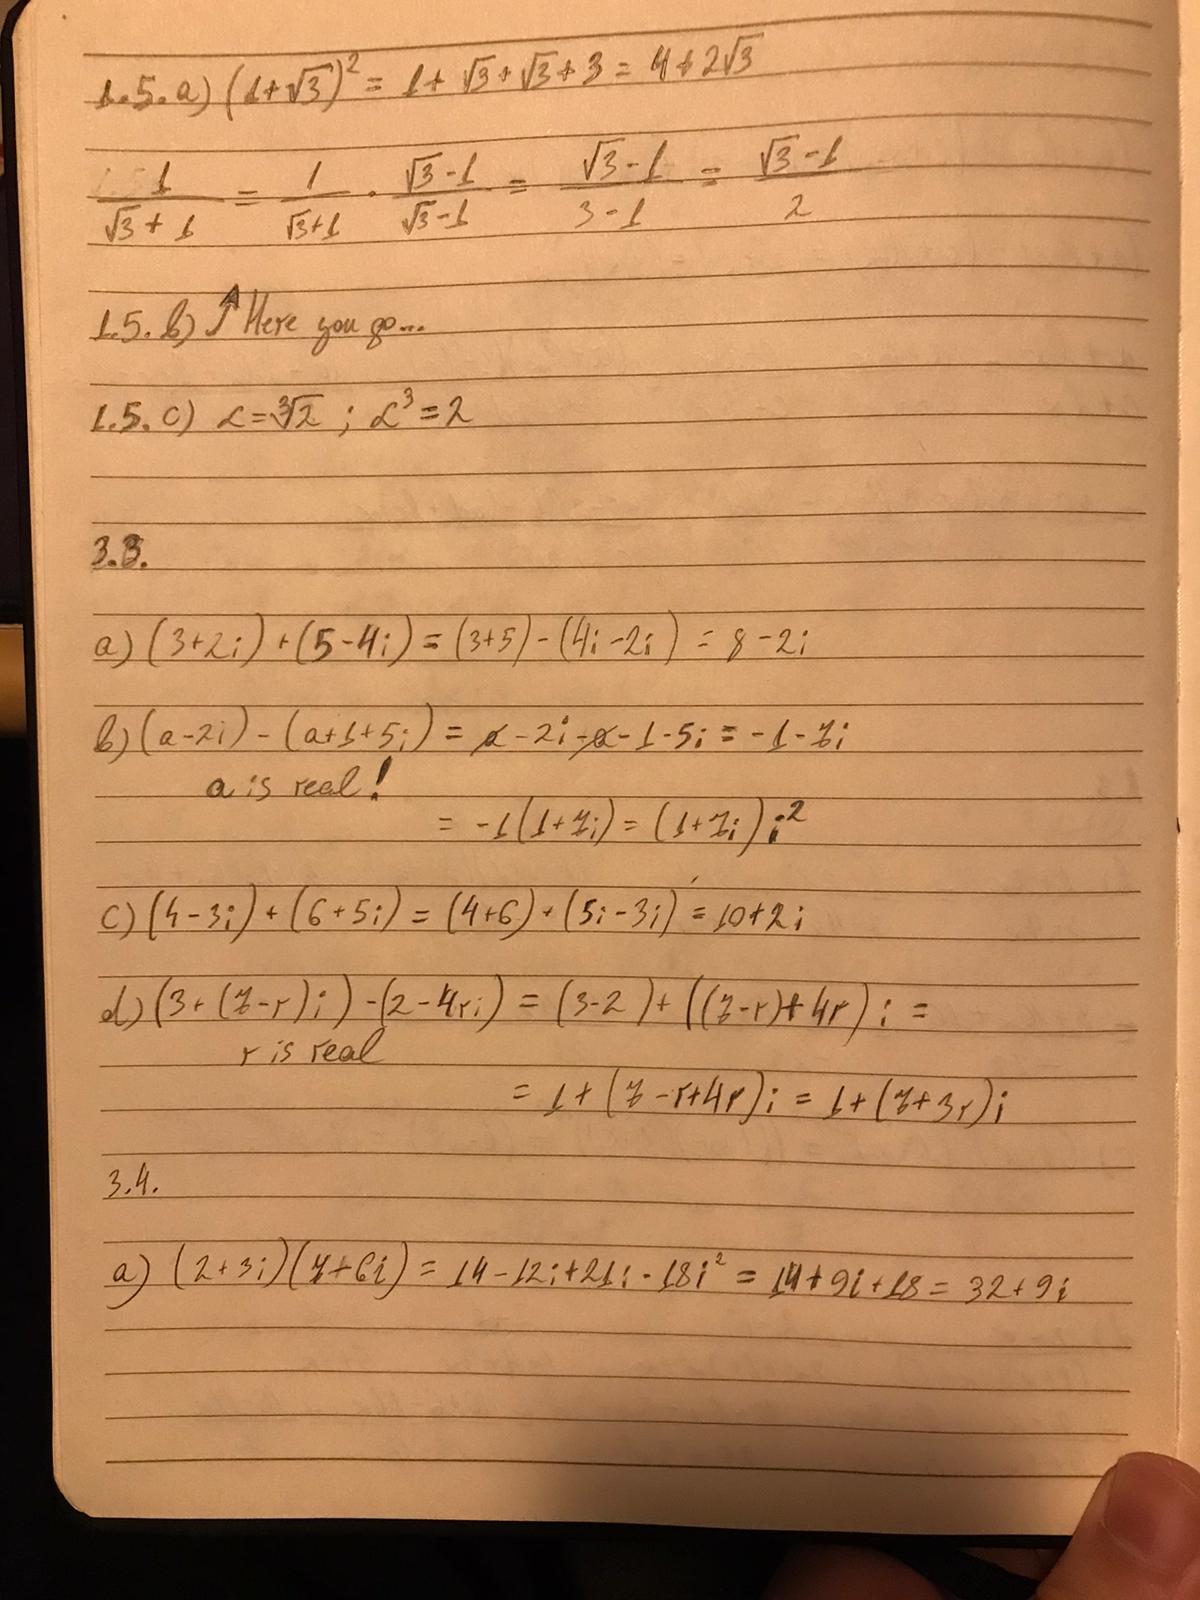 1.5.a) (1+√3)² = 1+ √3+√3+3 = 4+2√3
1/(√3+1) = 1/(√3+1) · (√3-1)/(√3-1) = (√3-1)/(3-1) = (√3-1)/2
1.5.b) ↑ Here you go...
1.5.c) α=∛2 ; α³=2
3.3.
a) (3+2i)+(5-4i) = (3+5)-(4i-2i) = 8-2i
b) (a-2i)-(a+1+5i) = a-2i-a-1-5i = -1-7i
a is real!
= -1(1+7i) = (1+7i)i²
c) (4-3i)+(6+5i) = (4+6)+(5i-3i) = 10+2i
d) (3+(7-r)i)-(2-4ri) = (3-2)+((7-r)+4r)i =
r is real
= 1+(7-r+4r)i = 1+(7+3r)i
3.4.
a) (2+3i)(7+6i) = 14-12i+21i-18i² = 14+9i+18 = 32+9i